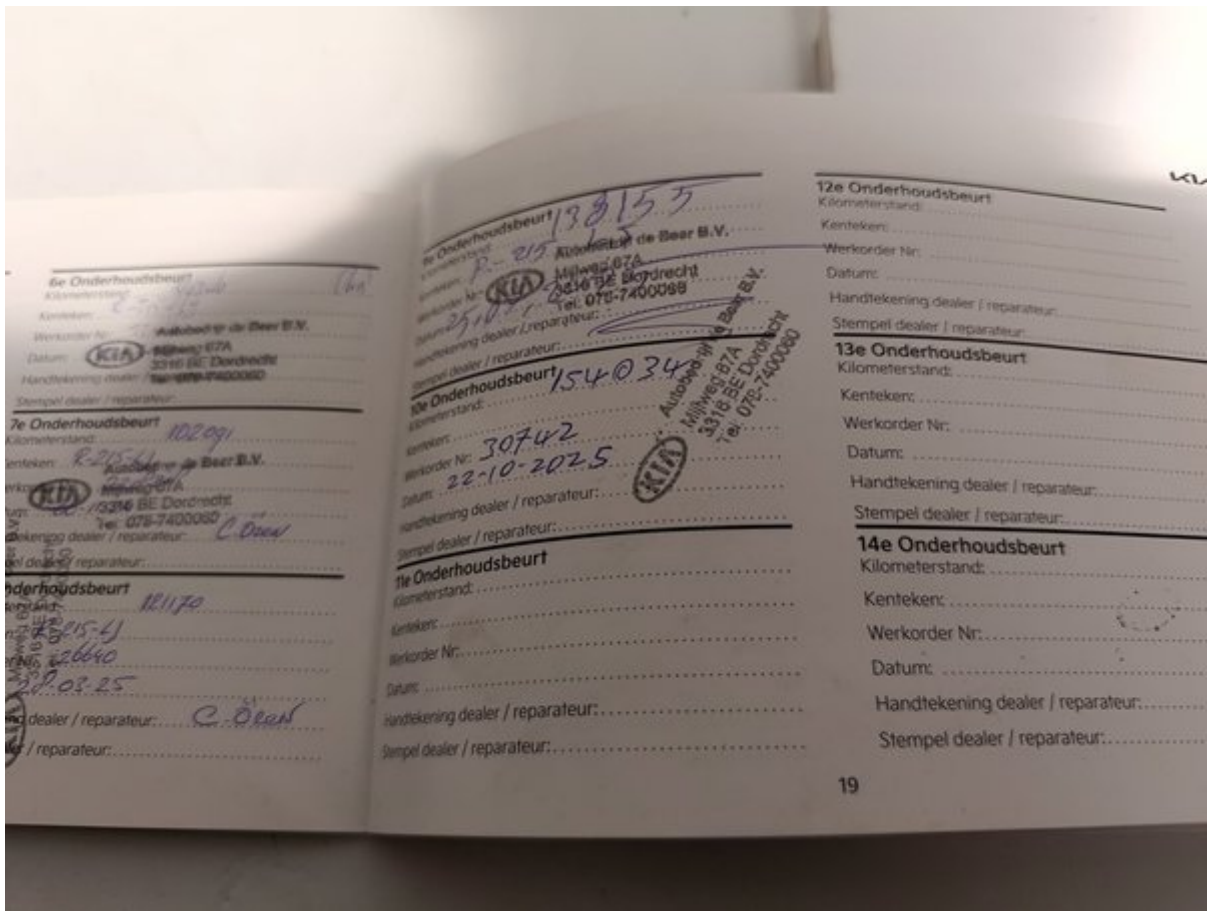 6e Onderhoudsbeurt
Kilometerstand:
Kenteken:
Werkorder Nr:
Autobedrijf de Beer B.V.
Datum:
KIA
Mijlweg 67A
3316 BE Dordrecht
Tel: 078-7400060
Handtekening dealer /
Stempel dealer / reparateur:
7e Onderhoudsbeurt
Kilometerstand: 102091
Kenteken: R-215-LJ
Autobedrijf de Beer B.V.
KIA
Mijlweg 67A
3316 BE Dordrecht
Tel: 078-7400060
dealer / reparateur: C. Ören
dealer / reparateur:
nderhoudsbeurt
121170
R-215-LJ
26640
28-03-25
dealer / reparateur: C. Ören
/ reparateur:
KIA
9e Onderhoudsbeurt
Kilometerstand: 138155
Kenteken: R-215-LJ
Werkorder Nr:
Datum:
KIA
Autobedrijf de Beer B.V.
Mijlweg 67A
3316 BE Dordrecht
Tel: 078-7400060
Handtekening dealer / reparateur:
Stempel dealer / reparateur:
10e Onderhoudsbeurt
Kilometerstand: 154034
Kenteken:
Werkorder Nr: 30742
Datum: 22-10-2025
Handtekening dealer / reparateur:
Stempel dealer / reparateur:
KIA
Autobedrijf de Beer B.V.
Mijlweg 67A
3316 BE Dordrecht
Tel: 078-7400060
11e Onderhoudsbeurt
Kilometerstand:
Kenteken:
Werkorder Nr:
Datum:
Handtekening dealer / reparateur:
Stempel dealer / reparateur:
12e Onderhoudsbeurt
Kilometerstand:
Kenteken:
Werkorder Nr:
Datum:
Handtekening dealer / reparateur:
Stempel dealer / reparateur:
13e Onderhoudsbeurt
Kilometerstand:
Kenteken:
Werkorder Nr:
Datum:
Handtekening dealer / reparateur:
Stempel dealer / reparateur:
14e Onderhoudsbeurt
Kilometerstand:
Kenteken:
Werkorder Nr:
Datum:
Handtekening dealer / reparateur:
Stempel dealer / reparateur:
19